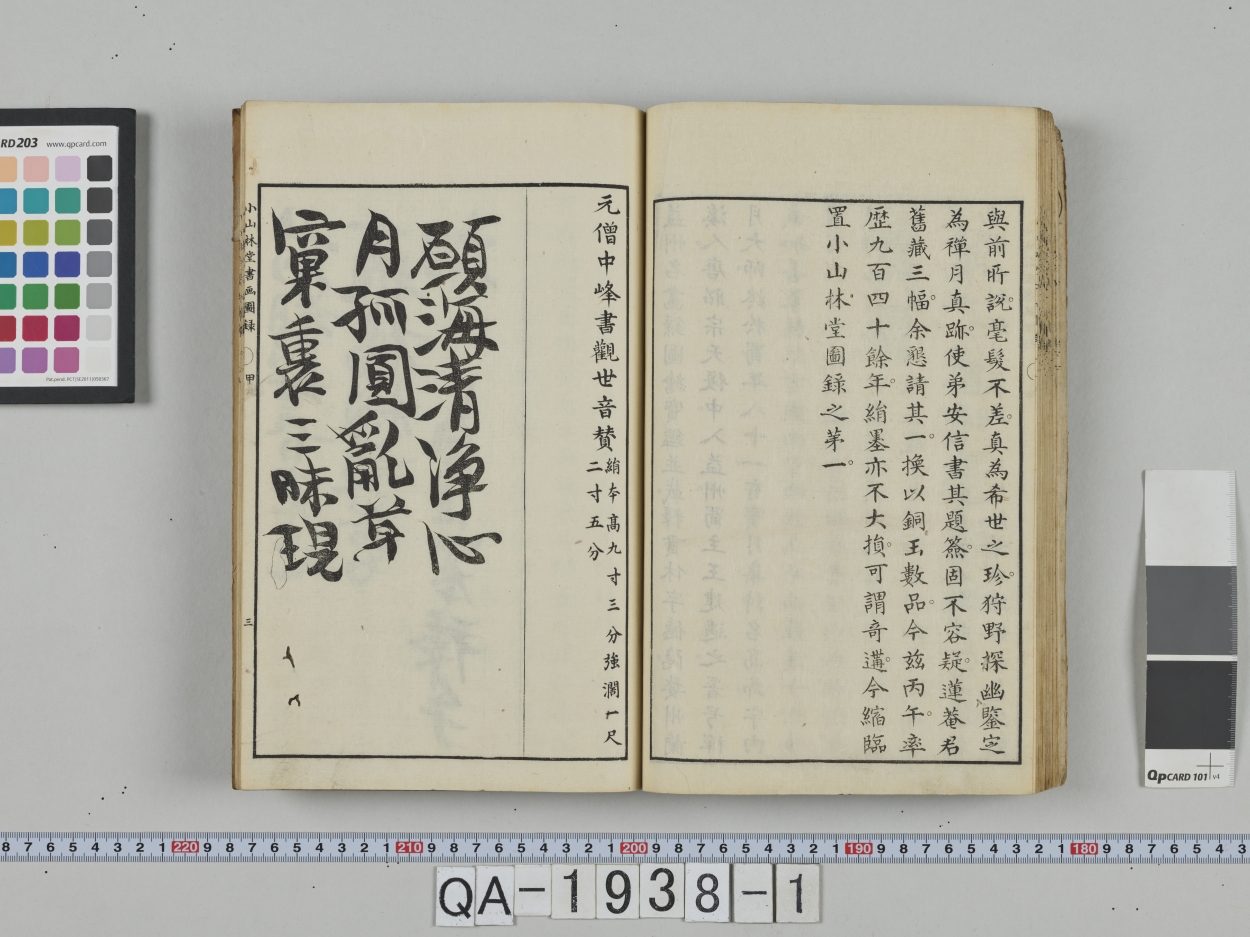 與前所説毫髮不差真為希世之珍狩野探幽鑒定
為禪月真跡使弟安信書其題簽固不容疑蓮菴君
舊藏三幅余懇請其一換以銅玉數品今玆丙午率
歴九百四十餘年絹墨亦不大損可謂奇遘今縮臨
置小山林堂圖録之苐一
元僧中峰書觀世音賛 絹本高九寸三分強濶一尺
二寸五分
願海清浄心
月孤圓亂草
窠裏三昧現
小山林堂書画圖録
甲
三
RD203 www.qpcard.com
QpCARD 101 v4
8 7 6 5 4 3 2 1 220 9 8 7 6 5 4 3 2 1 210 9 8 7 6 5 4 3 2 1 200 9 8 7 6 5 4 3 2 1 190 9 8 7 6 5 4 3 2 1 180 9 8 7 6 5 4 3
QA-1938-1